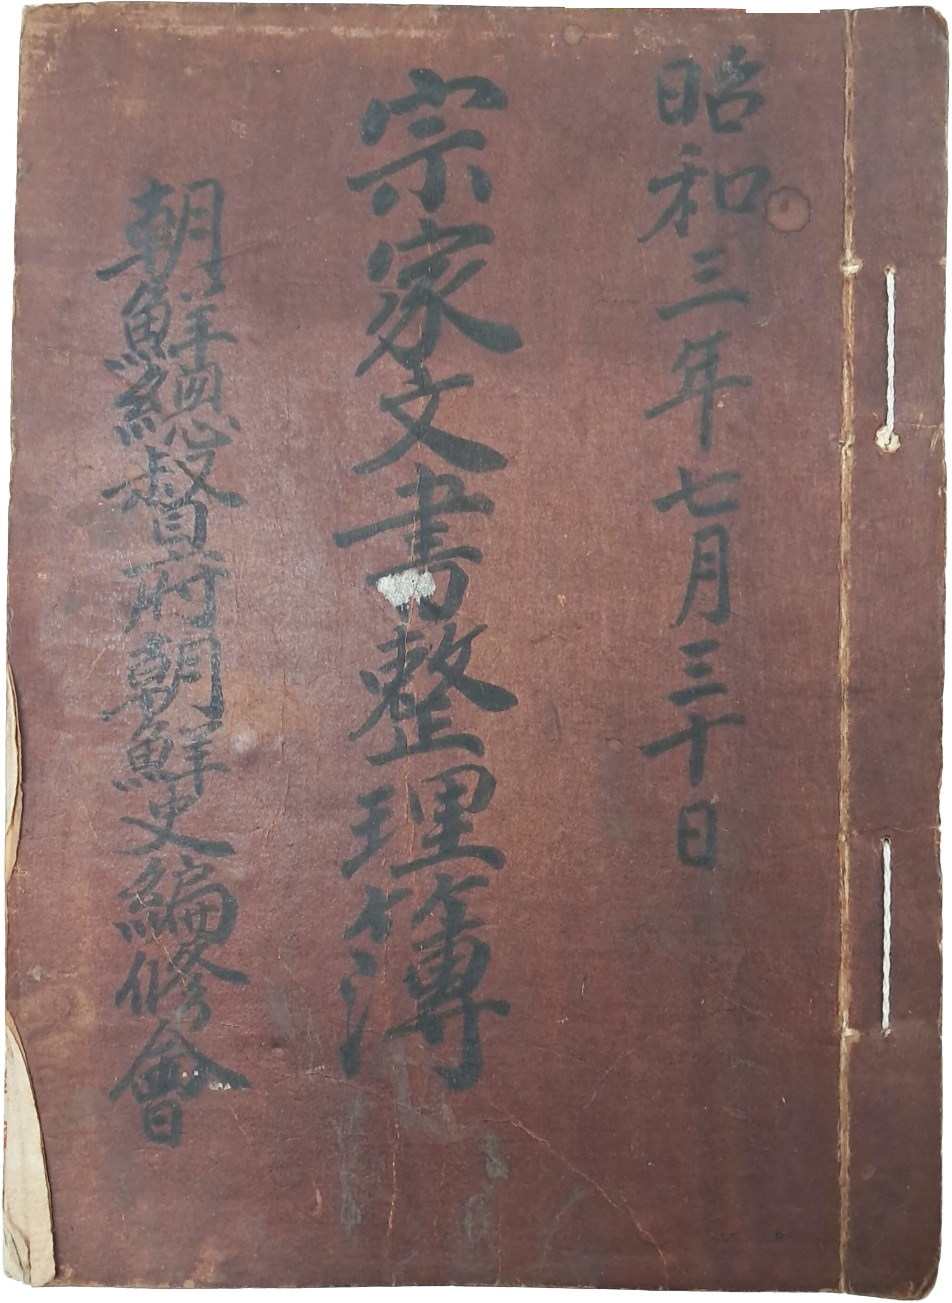 昭和三年七月三十日
宗家文書整理簿
朝鮮總督府朝鮮史編修會